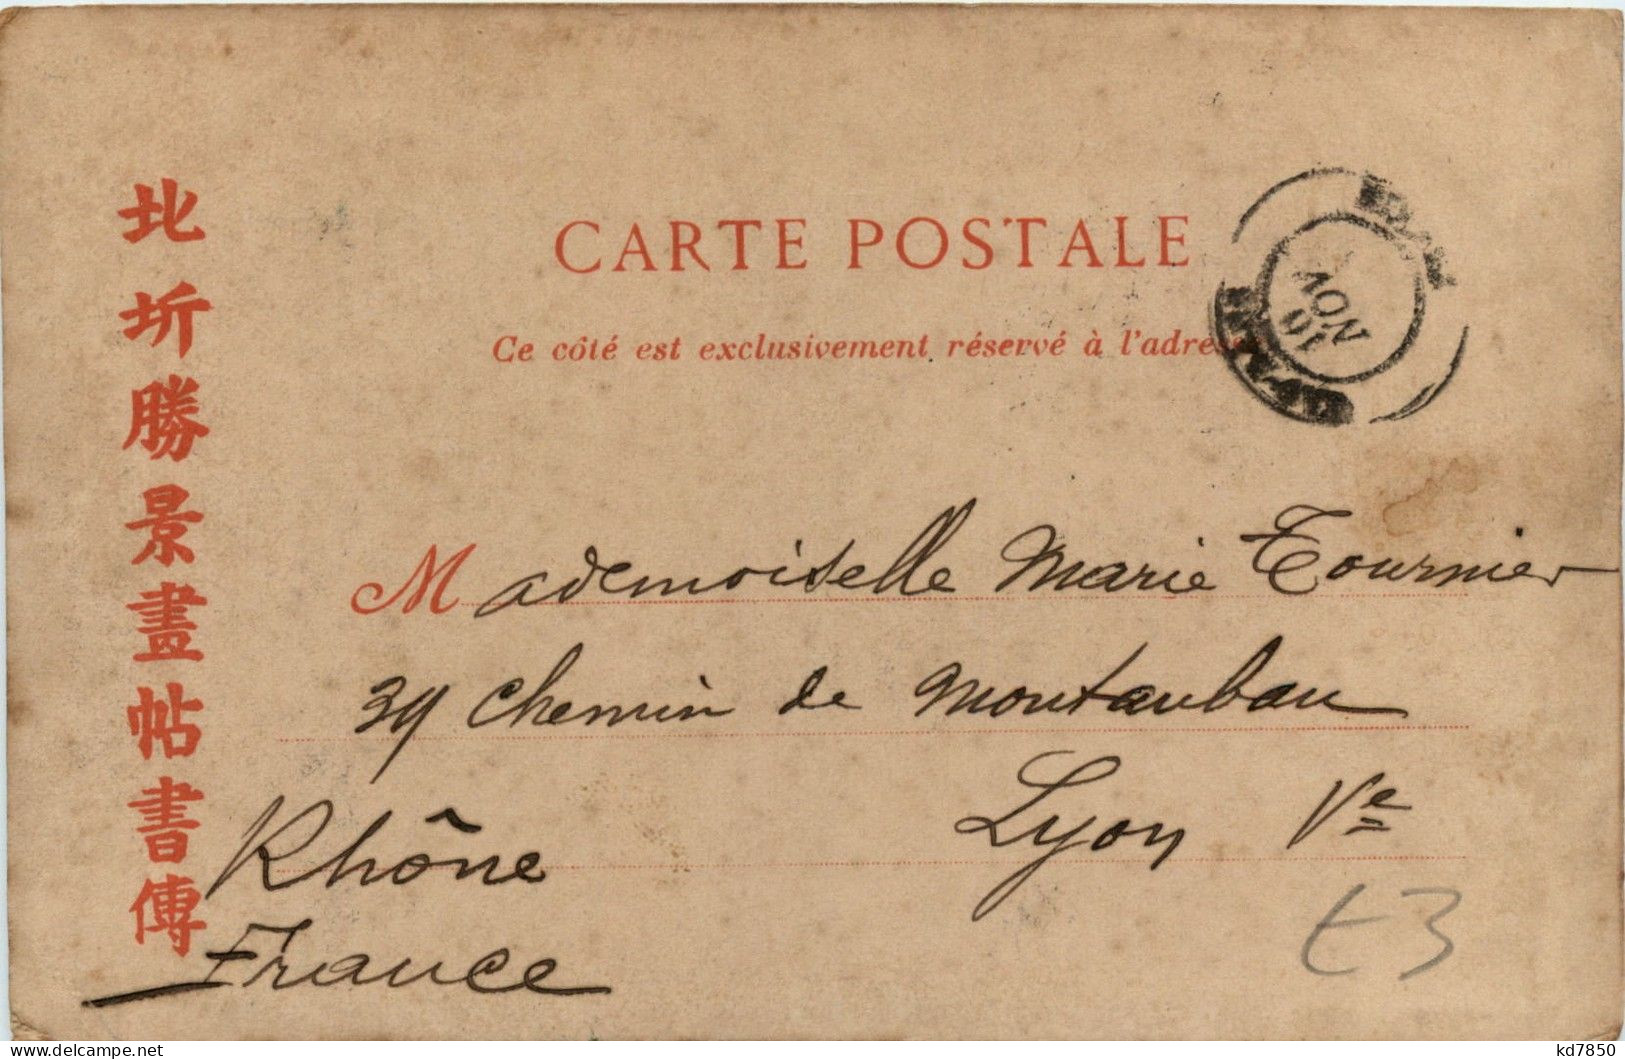 北圻勝景畫帖書傳
CARTE POSTALE
Ce côté est exclusivement réservé à l'adresse
NOV
Mademoiselle Marie Tournier
39 Chemin de Montauban
Lyon Vᵉ
Rhône
France
t3
delcampe.net
kd7850